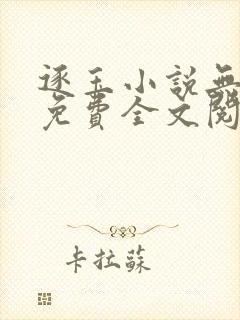 逐玉小說無
免費全文閱
卡拉蘇